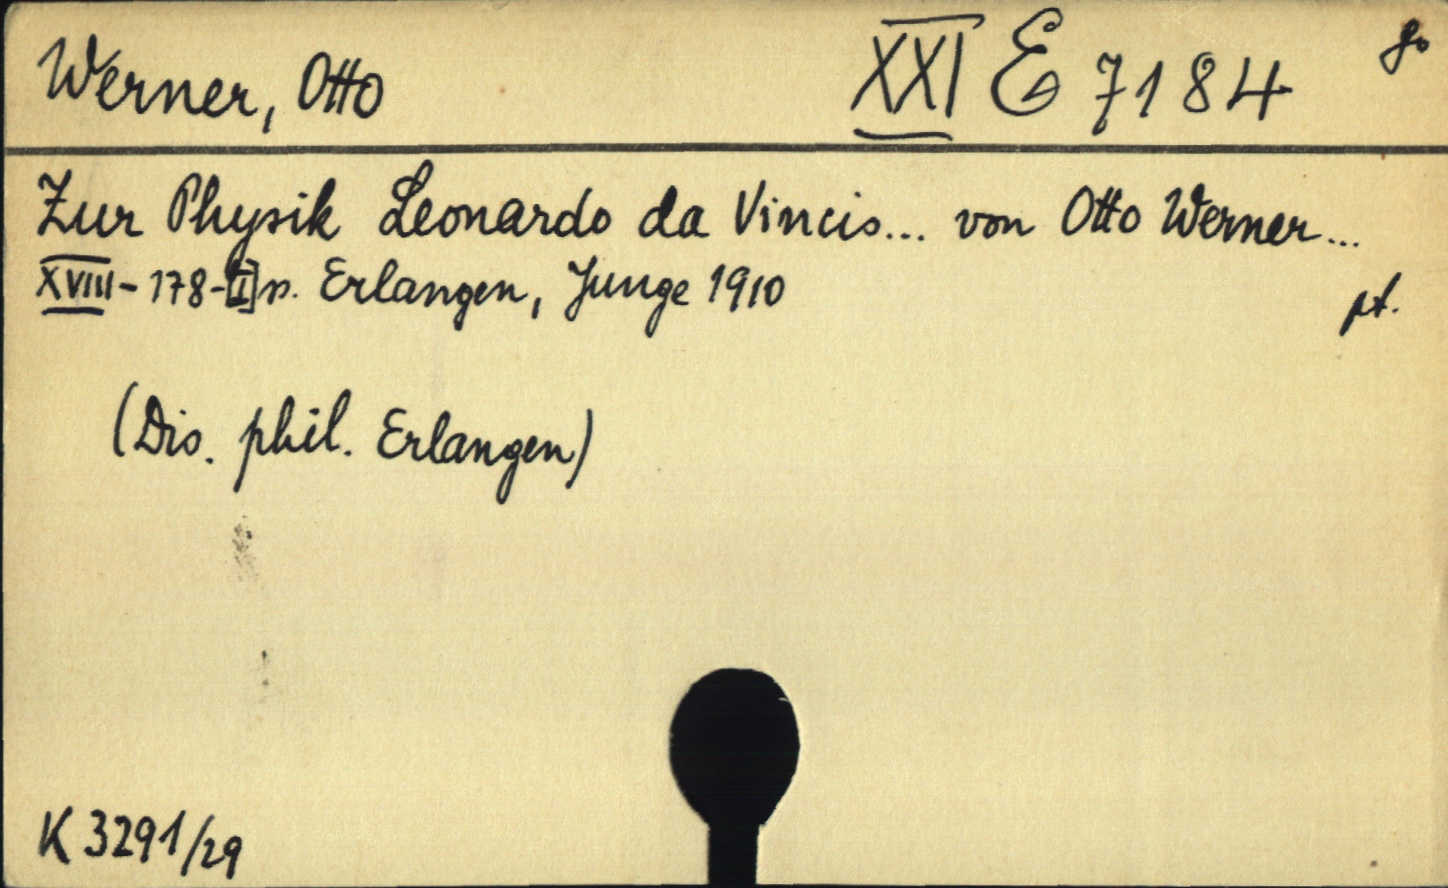 Werner, Otto XXI E 7184 8°
Zur Physik Leonardo da Vincis... von Otto Werner...
XVIII-178-[I]s. Erlangen, Junge 1910
pt.
(Dis. phil. Erlangen)
K 3291/29